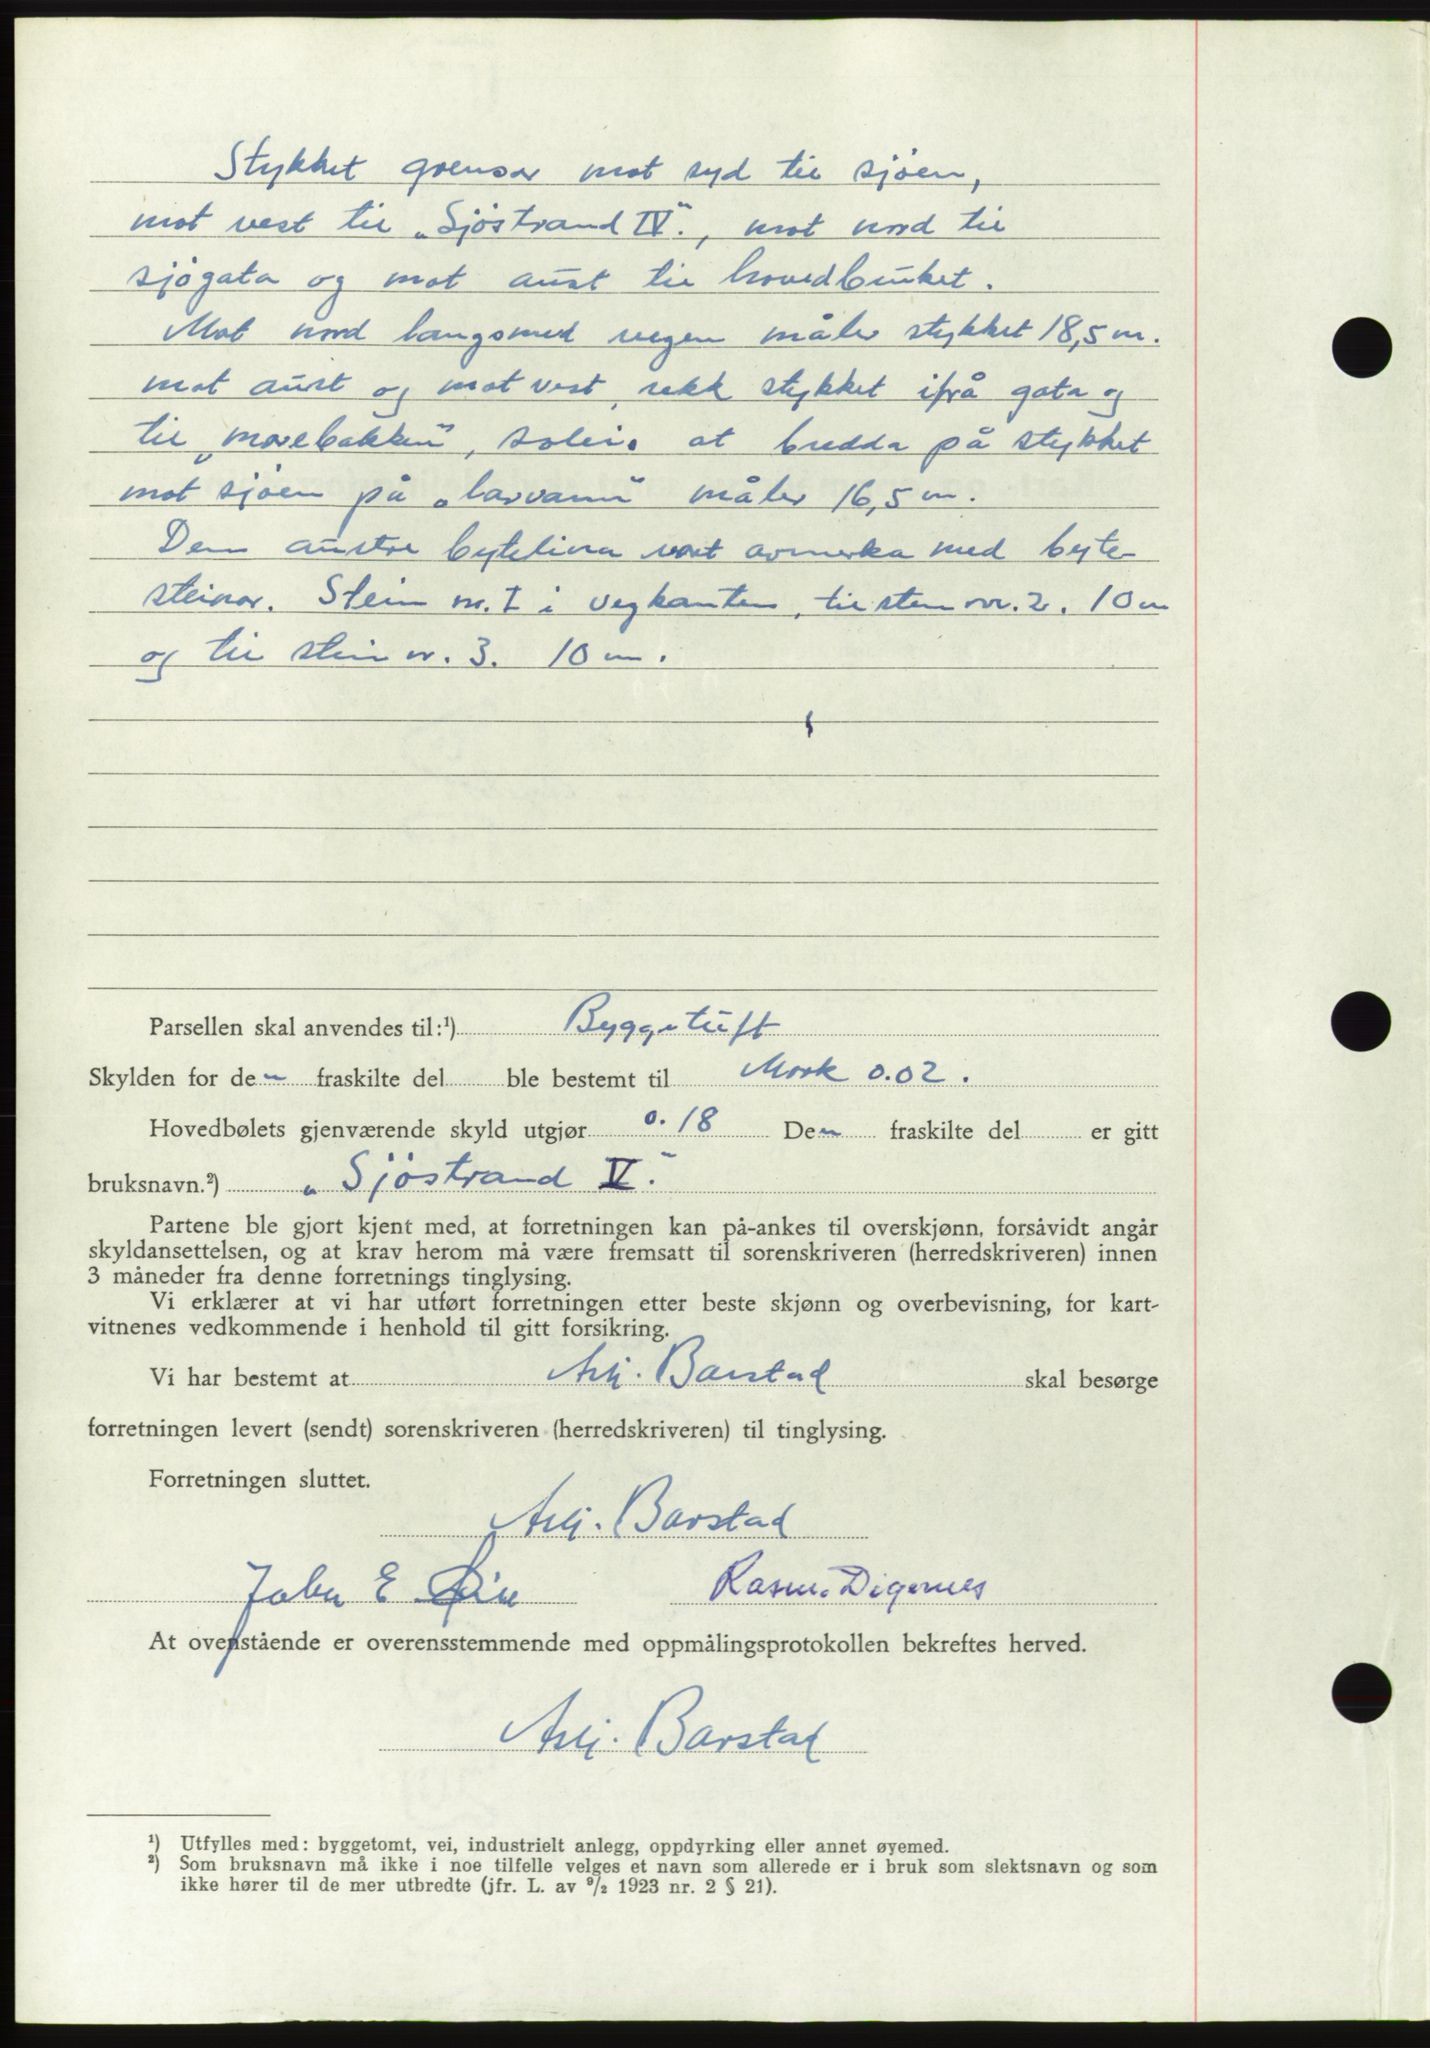 Stykket grensar mot syd til sjøen,
mot vest til „Sjöstrand IV.", mot nord til
sjögata og mot aust til hovedbruket.
Mot nord langsmed vegen måler stykket 18,5 m.
mot aust og mot vest, rekk stykket ifrå gata og
til „marebakken", soleis at bredda på stykket
mot sjøen på „larvann" måler 16,5 m.
Den austre bytelina vart avmerka med byte-
steinar. Stein nr. 1 i vegkanten, til sten nr. 2. 10 m
og til stein nr. 3. 10 m.
Parsellen skal anvendes til:¹) Byggetuft
Skylden for den fraskilte del ble bestemt til Mark 0.02.
Hovedbølets gjenværende skyld utgjør 0.18 Den fraskilte del er gitt
bruksnavn.²) „Sjöstrand V."
Partene ble gjort kjent med, at forretningen kan på-ankes til overskjønn, forsåvidt angår
skyldansettelsen, og at krav herom må være fremsatt til sorenskriveren (herredskriveren) innen
3 måneder fra denne forretnings tinglysing.
Vi erklærer at vi har utført forretningen etter beste skjønn og overbevisning, for kart-
vitnenes vedkommende i henhold til gitt forsikring.
Vi har bestemt at Asbj. Barstad skal besørge
forretningen levert (sendt) sorenskriveren (herredskriveren) til tinglysing.
Forretningen sluttet.
Asbj. Barstad
John E Rasm. Digernes
At ovenstående er overensstemmende med oppmålingsprotokollen bekreftes herved.
Asbj. Barstad
¹) Utfylles med: byggetomt, vei, industrielt anlegg, oppdyrking eller annet øyemed.
²) Som bruksnavn må ikke i noe tilfelle velges et navn som allerede er i bruk som slektsnavn og som
ikke hører til de mer utbredte (jfr. L. av ⁹/₂ 1923 nr. 2 § 21).